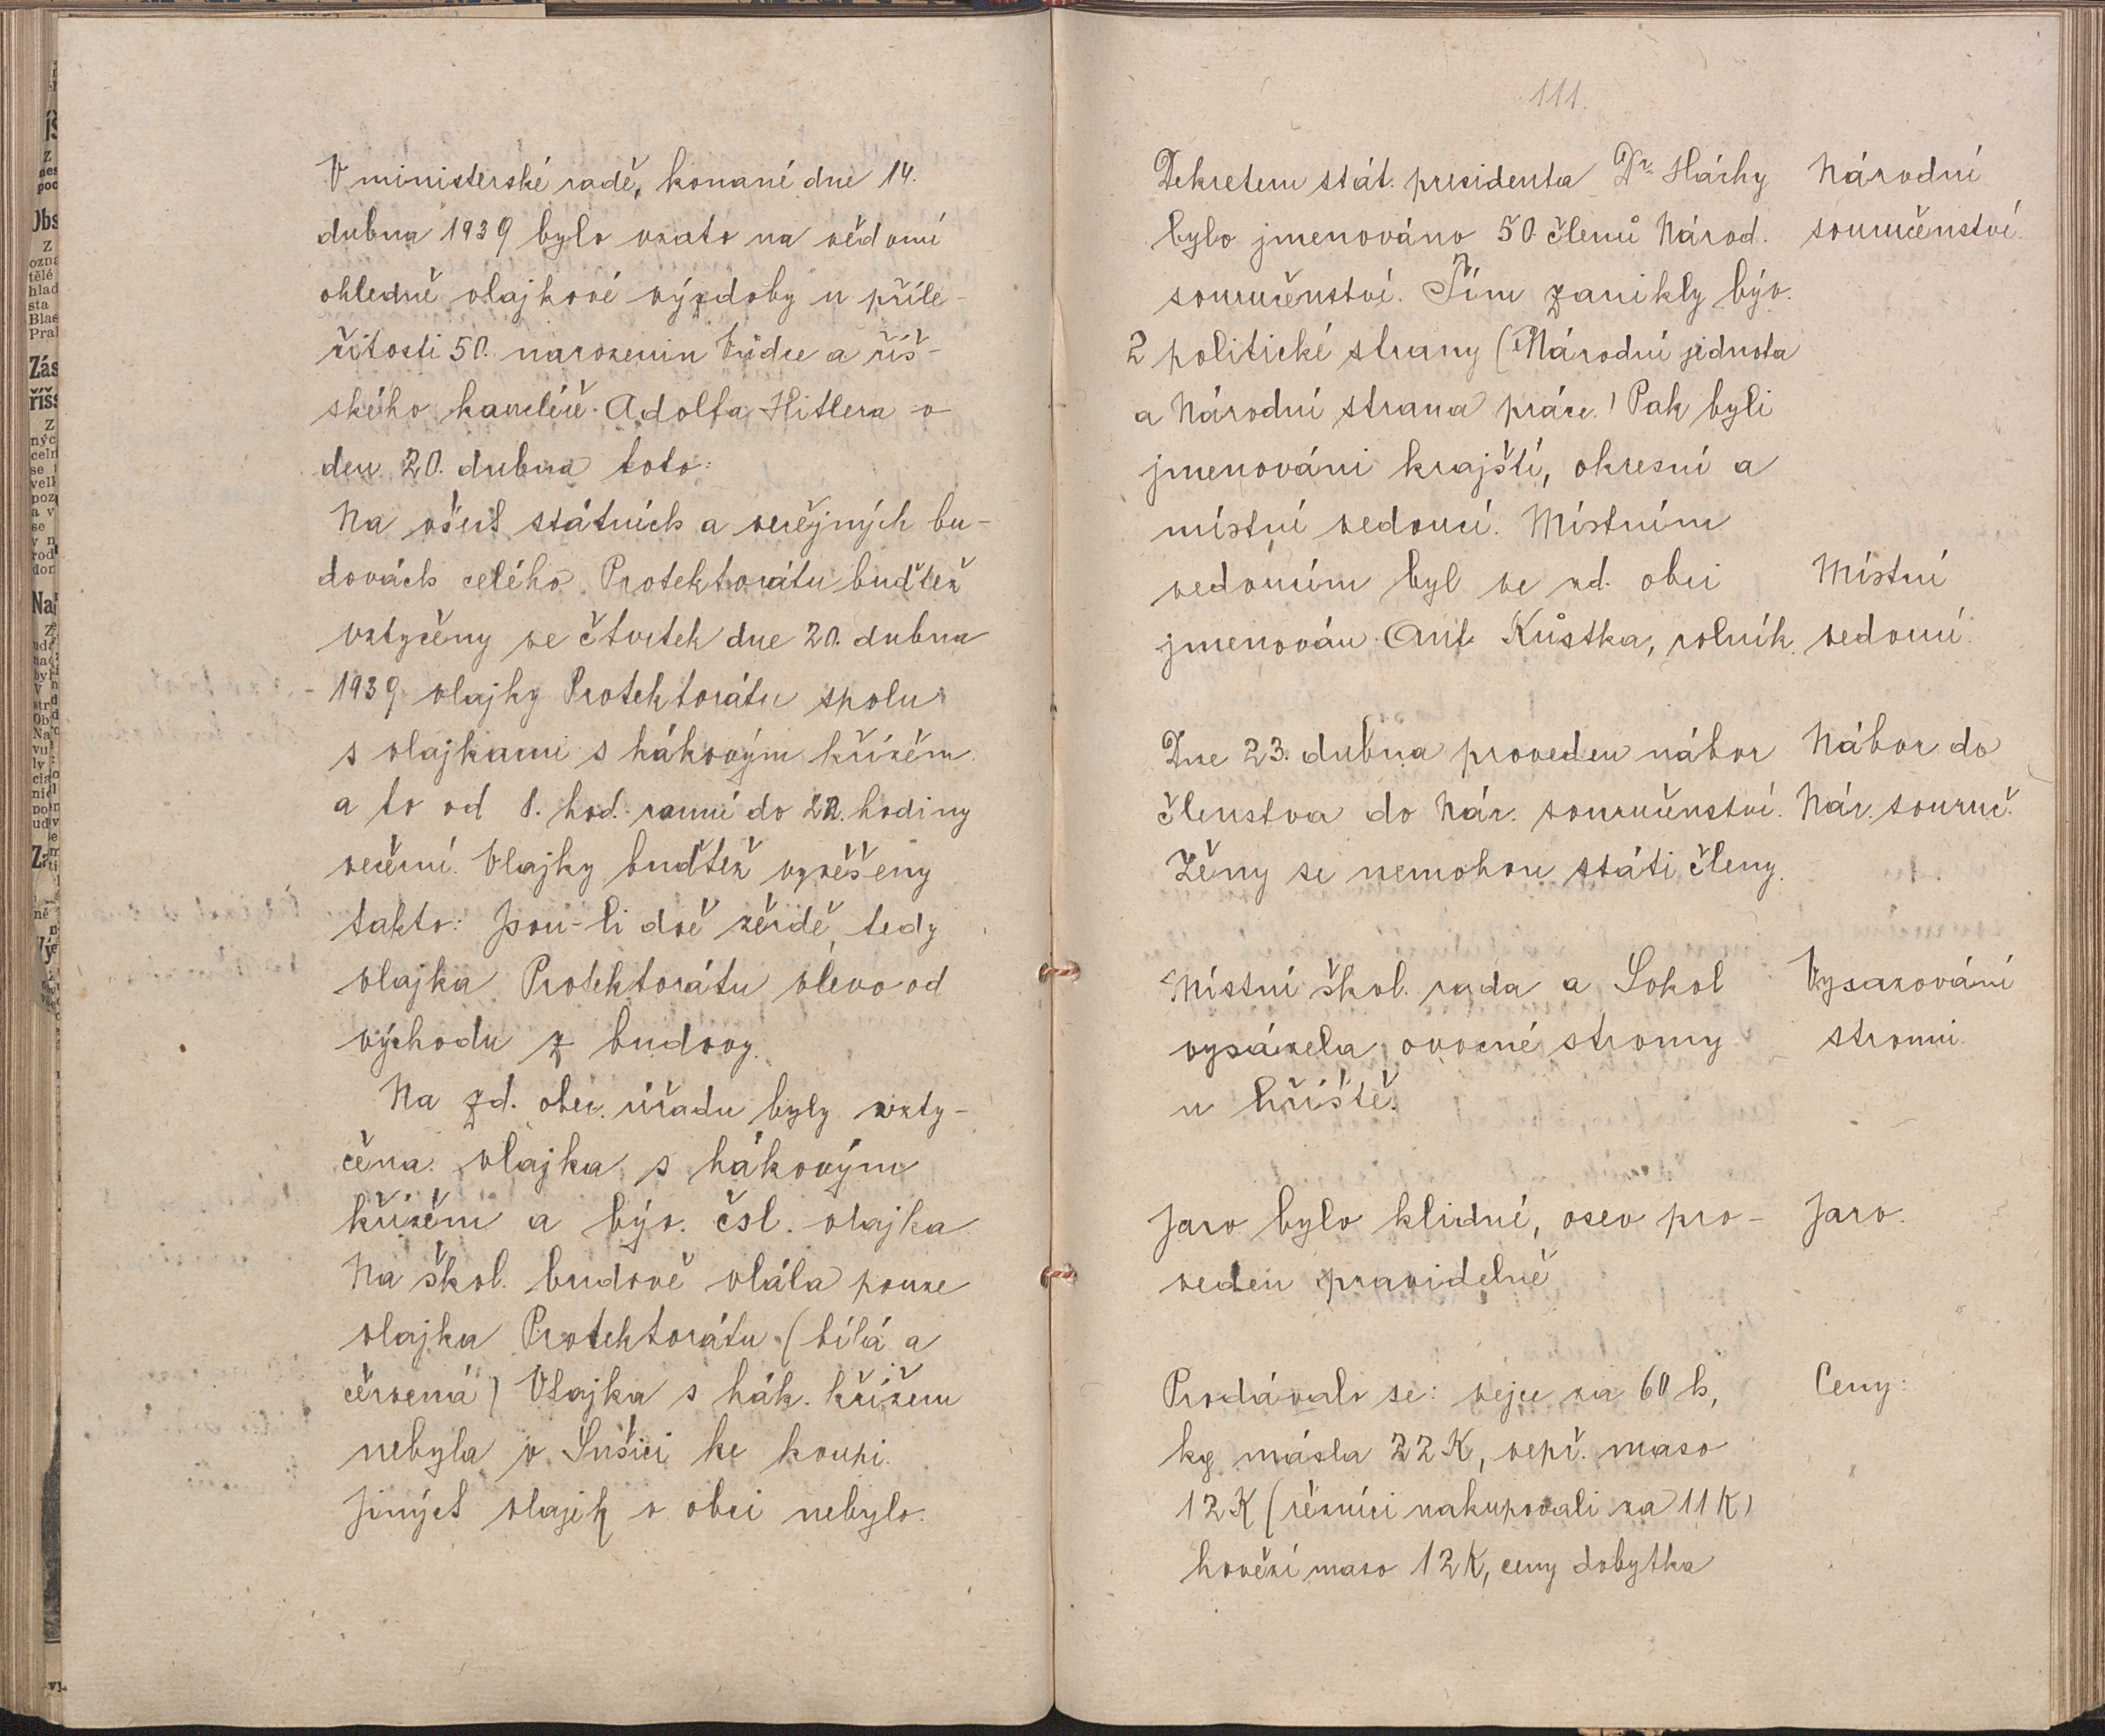 V ministerské radě, konané dne 14.
dubna 1939 bylo vzato na vědomí
ohledně vlajkové výzdoby u příle-
žitosti 50. narozenin Vůdce a říš-
ského kancléře Adolfa Hitlera v
den 20. dubna toto:
Na všech státních a veřejných bu-
dovách celého Protektorátu buďtež
vztyčeny ve čtvrtek dne 20. dubna
1939 vlajky Protektorátu spolu
s vlajkami s hákovým křížem
a to od 8. hod. ranní do 22. hodiny
večerní. Vlajky buďtež vyvěšeny
takto: Jsou-li dvě žerdě, tedy
vlajka Protektorátu vlevo od
východu z budovy.
Na zd. obec. úřadu byly vzty-
čena vlajka s hákovým
křížem a býv. čsl. vlajka
Na škol. budově vlála pouze
vlajka Protektorátu (bílá a
červená) Vlajka s hák. křížem
nebyla v Sušici ke koupi.
Jiných vlajek v obci nebylo.
111.
Dekretem stát. presidenta Dr. Háchy
bylo jmenováno 50 členů Národ.
souručenství. Tím zanikly býv.
2 politické strany (Národní jednota
a Národní strana práce.) Pak byli
jmenováni krajští, okresní a
místní vedoucí. Místním
vedoucím byl ve zd. obci
jmenován Ant. Kůstka, rolník.
Národní
souručenství.
Místní
vedoucí.
Dne 23. dubna proveden nábor
členstva do Nár. souručenství.
Ženy se nemohou státi členy.
Nábor do
Nár. souruč.
Místní škol. rada a Sokol
vysázela ovocné stromy
u hřiště.
Vysazování
stromů.
Jaro bylo klidné, osev pro-
veden pravidelně
Jaro.
Prodávalo se: vejce za 60 h,
kg másla 22 K, vepř. maso
12 K (řezníci nakupovali za 11 K)
hovězí maso 12 K, ceny dobytka
Ceny: